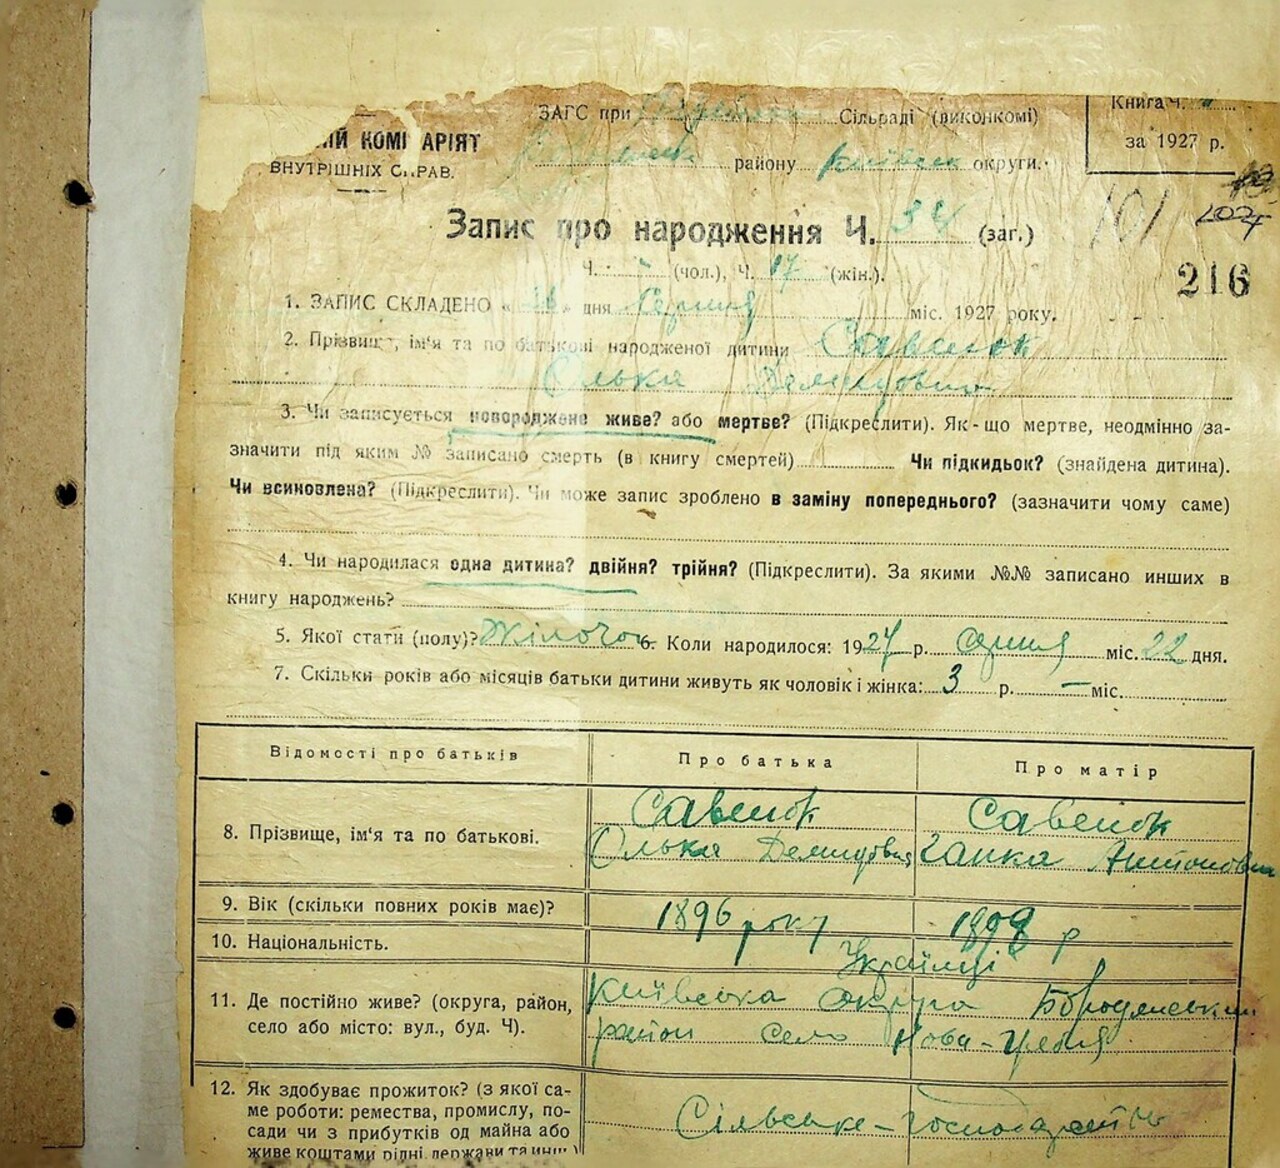 ЗАГС при Сільраді (виконкомі)
Книга Ч.
КОМІ АРІЯТ
ВНУТРІШНІХ С РАВ.
району Київськ округи.
за 1927 р.
101
Запис про народження Ч. 34 (заг.)
Ч. - (чол.), Ч. 17 (жін.).
216
1. ЗАПИС СКЛАДЕНО « » дня Серпня міс. 1927 року.
2. Прізвище, ім'я та по батькові народженої дитини Савенок
Олька Демидовна
3. Чи записується новороджене живе? або мертве? (Підкреслити). Як-що мертве, неодмінно за-
значити під яким № записано смерть (в книгу смертей) Чи підкидьок? (знайдена дитина).
Чи всиновлена? (Підкреслити). Чи може запис зроблено в заміну попереднього? (зазначити чому саме)
4. Чи народилася одна дитина? двійня? трійня? (Підкреслити). За якими №№ записано инших в
книгу народжень?
5. Якої стати (полу)? Жіночої 6. Коли народилося: 1927 р. серпня міс. 22 дня.
7. Скільки років або місяців батьки дитини живуть як чоловік і жінка: 3 р. — міс.
Відомості про батьків Про батька Про матір
8. Прізвище, ім'я та по батькові. Савенок Савенок
Олька Демидовна Ганка Антоновна
9. Вік (скільки повних років має)? 1896 року 1898 р
10. Національність. Українці
11. Де постійно живе? (округа, район, Київська округа Бородянський
село або місто: вул., буд. Ч). район село Нова-Гребля
12. Як здобуває прожиток? (з якої са-
ме роботи: ремества, промислу, по- Сільське-господарство
сади чи з прибутків од майна або
живе коштами рідні, держави та инш.)